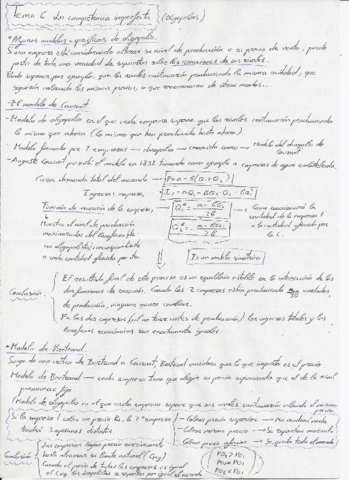 Tema 6 La competencia imperfecta (Oligopolios)
• Algunos modelos específicos de oligopolio.
Si una empresa está considerando alterar su nivel de producción o su precio de venta, puede
partir de toda una variedad de supuestos sobre las reacciones de sus rivales.
Puede suponer, por ejemplo, que los rivales continuarán produciendo la misma cantidad, que
seguirán cobrando los mismos precios, o que reaccionarán de otros modos...
- El modelo de Cournot.
- Modelo de oligopolio en el que cada empresa supone que los rivales continuarán produciendo
lo mismo que ahora (lo mismo que han producido hasta ahora).
- Modelo formado por 2 empresas → duopolio → conocido como → Modelo del duopolio de Cournot
- Auguste Cournot permitió el modelo en 1838 tomando como ejemplo a empresas de agua embotellada.
Curva demanda total del mercado → P = a - b(Q1 + Q2)
Ingresos empresa,
Función de reacción de la empresa,
Muestra el nivel de producción
maximizador del beneficio de
un oligopolista, correspondiente
a cada cantidad ofrecida por otro
cantidad de la empresa 1
a la cantidad ofrecida por
Es un modelo simétrico
El resultado final de este proceso es un equilibrio estable en la intersección de las
dos funciones de reacción. Cuando las 2 empresas están produciendo unidades
de producción, ninguna quiere cambiar.
Conclusión:
los ingresos totales y los
beneficios económicos son exactamente iguales.
• Modelo de Bertrand.
Surge de una crítica de Bertrand a Cournot, Bertrand considera que lo que importa es el precio
Modelo de Bertrand → cada empresa tiene que elegir su precio suponiendo que el de la rival
permanece fijo
(Modelo de oligopolio en el que cada empresa supone que sus rivales continuarán cobrando el mismo
precio.
Si la empresa 1 cobra un precio P01, la 2ª empresa
tendrá 3 opciones distintas
- Cobrar precio superior → No venderá nada
- Cobrar mismo precio → Se reparten mercado
- Cobrar precio inferior → Se queda todo el mercado
Conclusión
Las empresas bajan precio sucesivamente
hasta alcanzar su límite natural (Cmg)
Cuando el precio de todas las empresas es igual
al Cmg